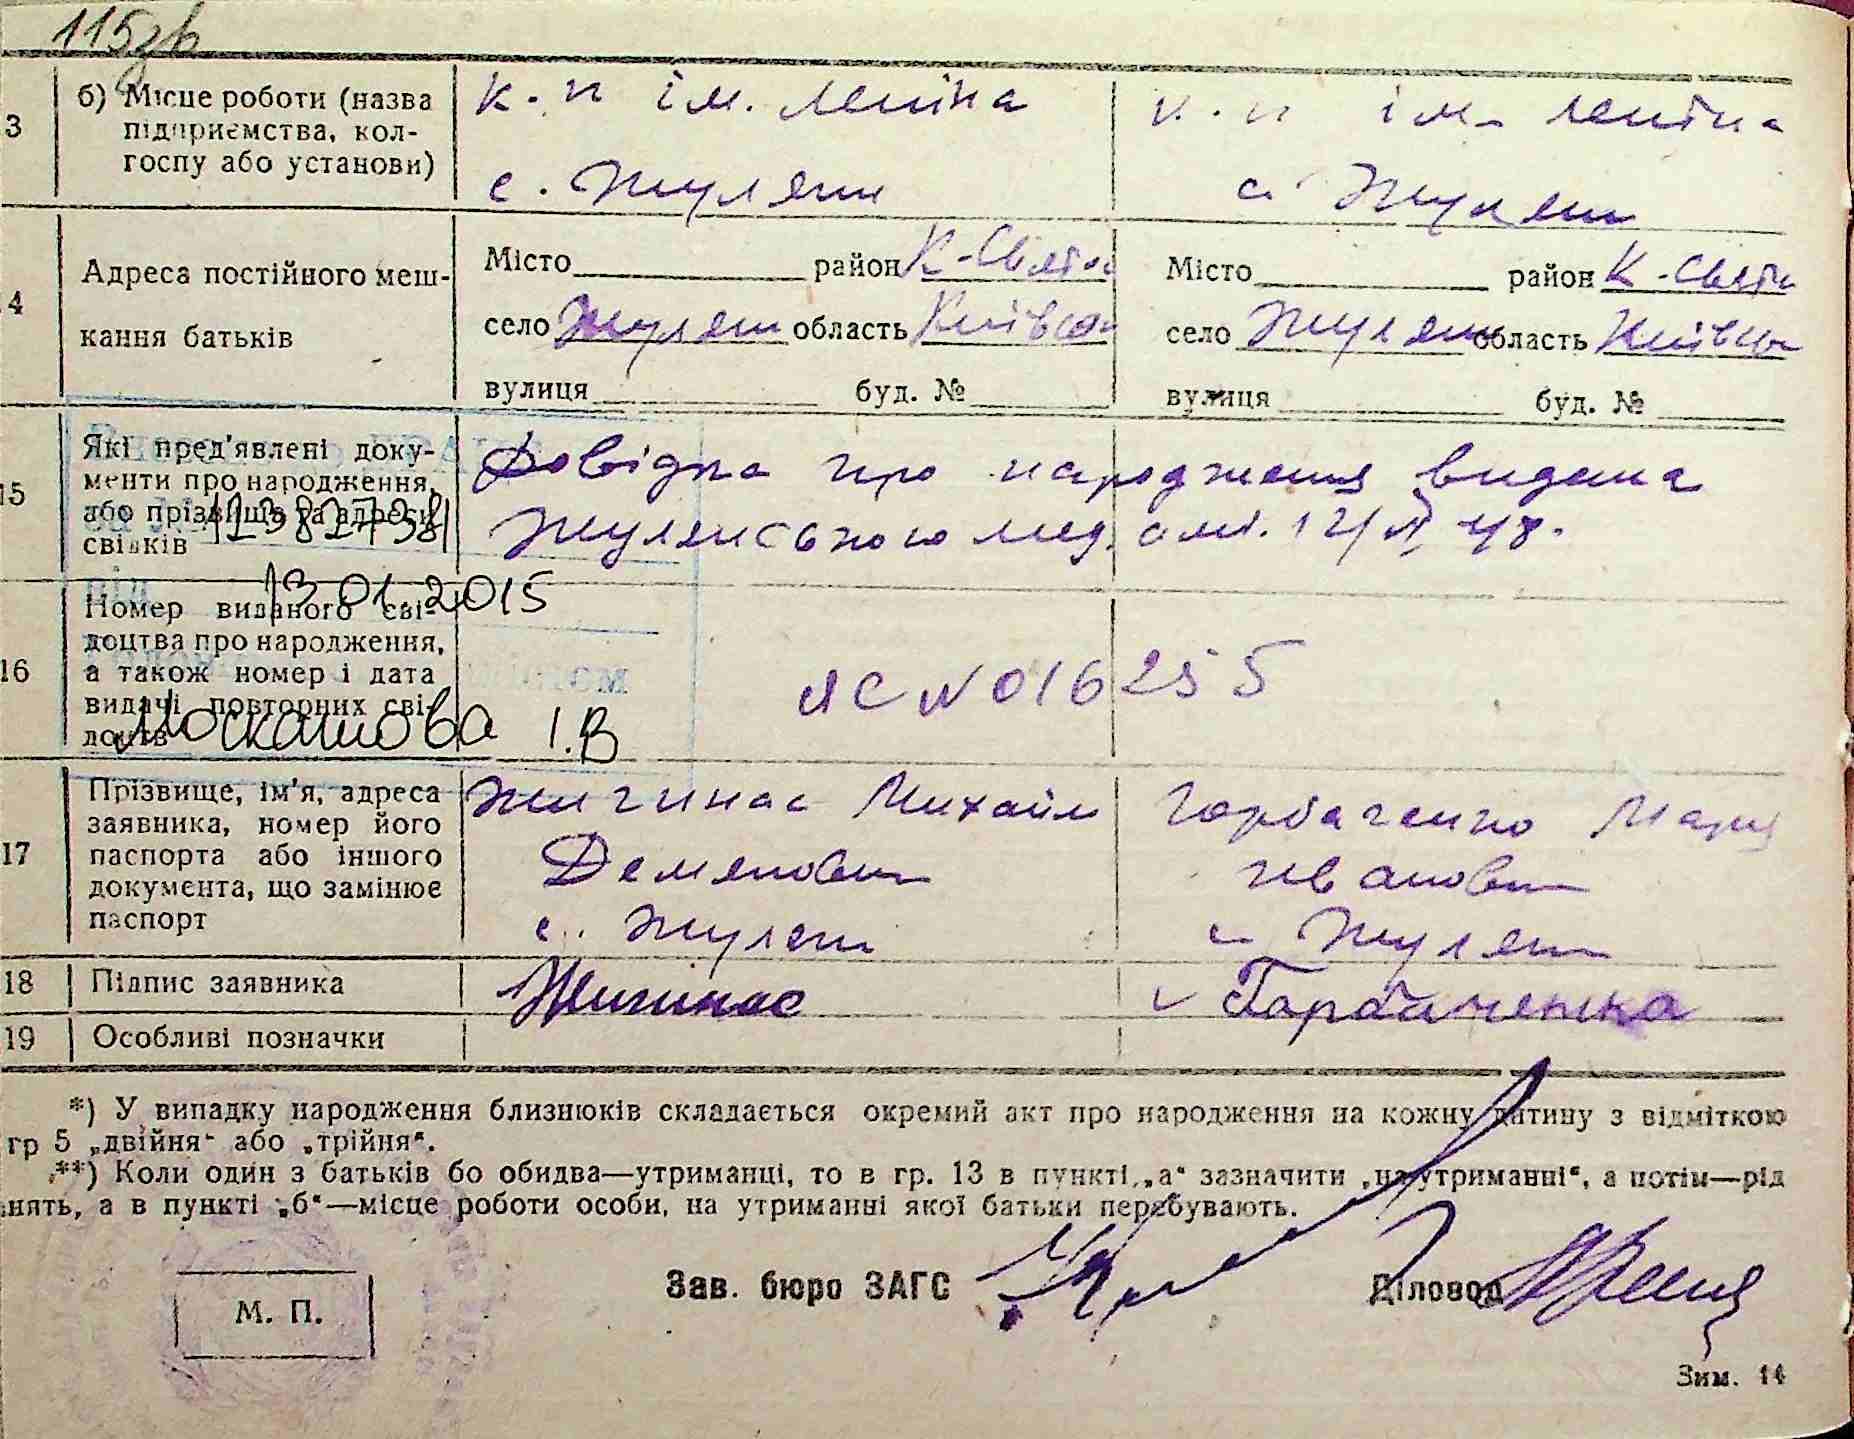 115зв
3 б) Місце роботи (назва підприємства, кол-госпу або установи)
к. п ім. Леніна к. п ім. Леніна
с. Жуляни с. Жуляни
4 Адреса постійного меш-
кання батьків
Місто район К-Святош Місто район К-Святош
село Жуляни область Київська село Жуляни область Київська
вулиця буд. № вулиця буд. №
15 Які пред'явлені доку-
менти про народження,
або прізвище та адреси
свідків
Довідка про народження видана
Жулянського мед.
12382798
13 01.2015
16 Номер виданого сві-
доцтва про народження,
а також номер і дата
видачі повторних сві-
доцтв
ЯС №016255
І.В
17 Прізвище, ім'я, адреса
заявника, номер його
паспорта або іншого
документа, що замінює
паспорт
Жигинас Михайло Горбаченко Марія
Демянович Івановна
с. Жуляни с. Жуляни
18 Підпис заявника Жигинас Горбаченка
19 Особливі позначки
*) У випадку народження близнюків складається окремий акт про народження на кожну дитину з відміткою
гр 5 „двійня“ або „трійня“.
**) Коли один з батьків бо обидва—утриманці, то в гр. 13 в пункті „а“ зазначити „на утриманні“, а потім—рід
нять, а в пункті „б“—місце роботи особи, на утриманні якої батьки перебувають.
Зав. бюро ЗАГС Діловод
М. П.
Зим. 14